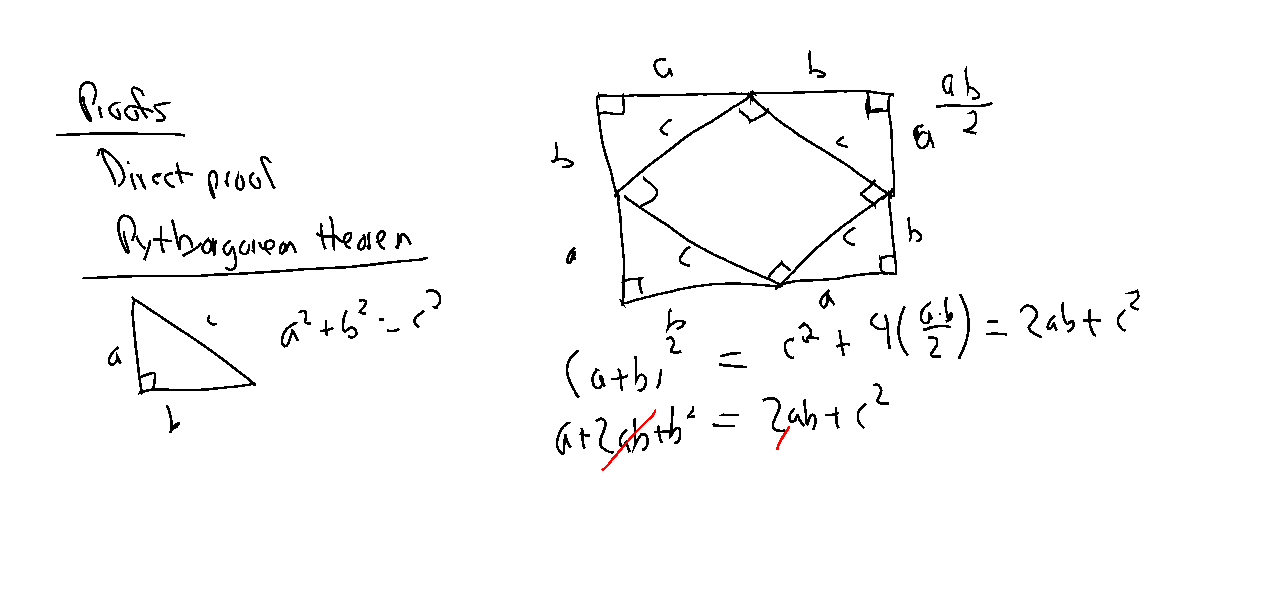 Proofs
Direct proof
Pythagorean Theorem
a
b
c
a² + b² = c²
a b
ab/2
b c c a
a c c b
b a
(a+b)² = c² + 4(a·b/2) = 2ab + c²
a+2ab+b² = 2ab + c²